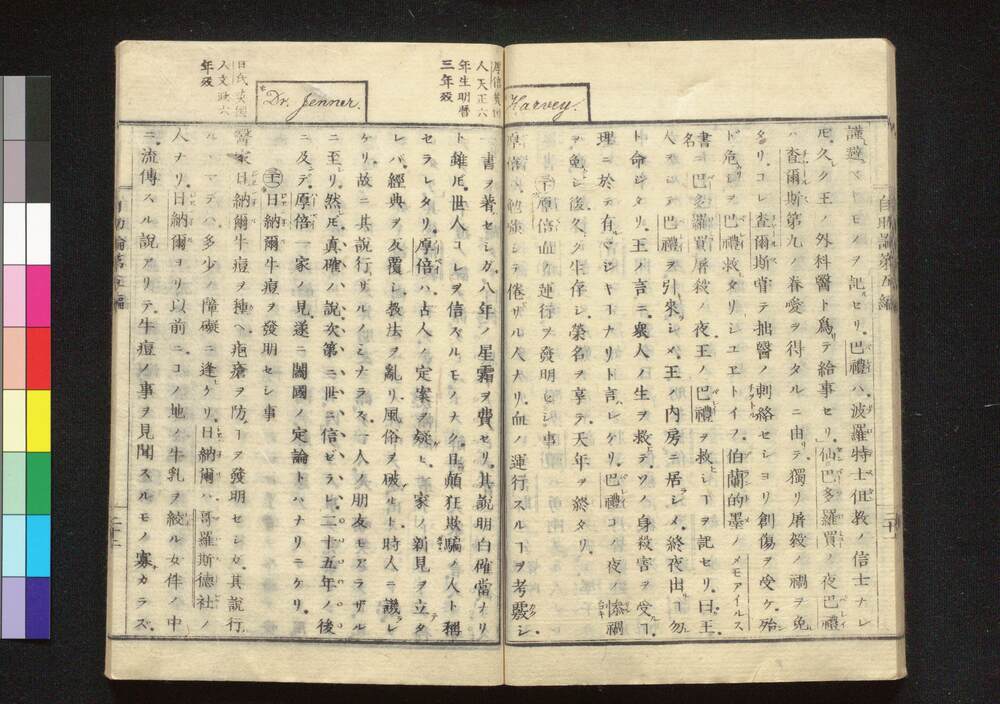 自助論第五編
謹遵スルモノヲ記セリ。巴禮ハ波羅特士但教ノ信士ナレ
𪜈、久ク王ノ外科醫ト爲テ給事セリ。仙巴多羅買ノ夜巴禮
ハ査爾斯第九ノ眷愛ヲ得タルニ由テ獨リ屠殺ノ禍ヲ免
タリ。コレ査爾斯甞テ拙醫ノ刺絡セシヨリ創傷ヲ受ケ殆
ド危シヲ巴禮救タリシユエトイフ。伯蘭的墨ノメモアイルス
書名ニ巴多羅買屠殺ノ夜王ノ巴禮ヲ救シヿヲ記セリ。曰王
人ヲシテ巴禮ヲ引來シメ、王ノ内房ニ居ラシメ、終夜出ヿ勿
ト命ジタリ。王ノ言ニ衆人ノ生ヲ救テソノ身殺害ヲ受ヿ
理ニ於テ有マジキヿナリト言レケリ。巴禮コノ夜ノ惨禍
ヲ免レ、後久ク生存シ榮名ヲ享テ天年ヲ終タリ。
厚倍血ノ運行ヲ發明セシ事
厚倍勉強シテ倦ザル人ナリ。血ノ運行スルヿヲ考覈シ
Harvey.
厚倍英國
人天正六
年生明暦
三年歿
書ヲ著セシガ、八年ノ星霜ヲ費セリ。其説明白確當ナリ
ト雖𪜈、世人コレヲ信ズルモノナク、且顛狂欺騙ノ人ト稱
セラレタリ。厚倍ハ古人ノ定案ヲ疑ヒ、一家ノ新見ヲ立タ
レバ、經典ヲ反覆シ、教法ヲ亂リ、風俗ヲ破ルト時人ニ譏ラレ
ケリ。故ニ其説行ハザルノミナラズ、一人ノ朋友モアラザル
ニ至リ。然𪜈、真確ノ説次第ニ世ニ信ゼラレ、二十五年ノ後
ニ及ンデ、厚倍一家ノ見遂ニ闔國ノ定論トハナリニケリ。
日納爾牛痘ヲ發明セシ事
Dr. Jenner.
日氏英國
人文政六
年歿
醫家日納爾牛痘ヲ種ヘ、疱瘡ヲ防グヿヲ發明セシガ、其説行
ハルルマデハ多少ノ障礙ニ逢ケリ。日納爾ハ哥羅斯德社ノ
人ナリ。日納爾ヨリ以前ニコノ地ノ牛乳ヲ絞ル女伴ノ中
ニ流傳スル説アリテ、牛痘ノ事ヲ見聞スルモノ寡カラズ。
自助論第五編
二十一